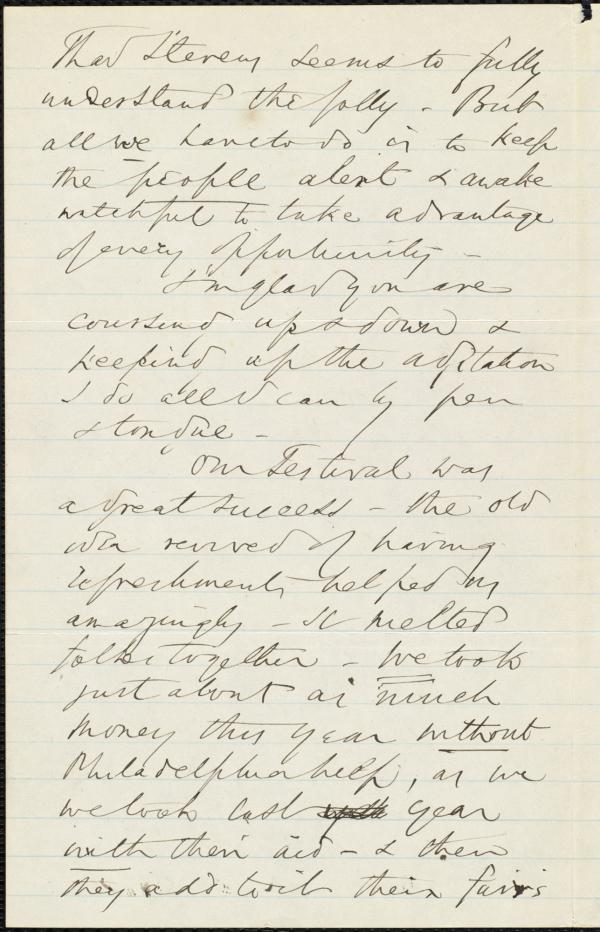 Thad Stevens seems to fully
understand the folly - But
all we have to do is to keep
the people alert & awake
watchful to take advantage
of every opportunity -
I'm glad you are
coursing up & down &
keeping up the agitation
I do all I can by pen
& tongue -
Our Festival was
a great success - the old
idea revived of having
refreshments helped us
amazingly - It melted
folks together - We took
just about as much
money this year without
Philadelphia help, as we
we took last year
with their aid - & then
they add to it their fairs